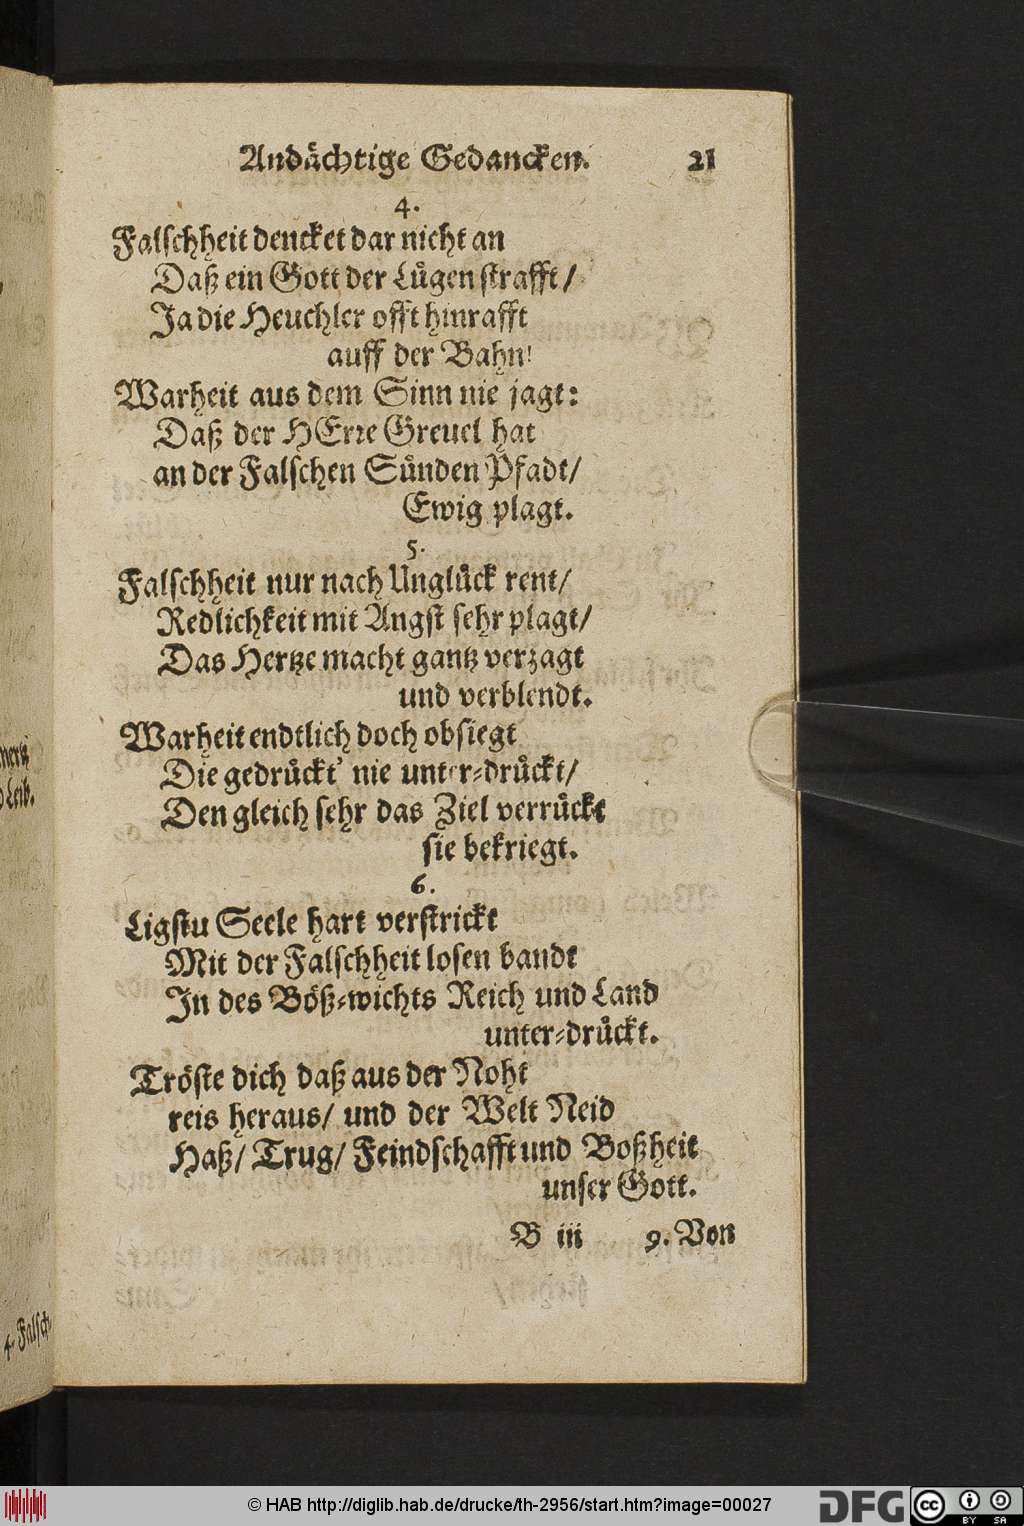 Andächtige Gedancken. 21
4.
Falschheit dencket dar nicht an
Daß ein Gott der Lügen strafft/
Ja die Heuchler offt hinrafft
auff der Bahn!
Warheit aus dem Sinn nie jagt:
Daß der HErre Greuel hat
an der Falschen Sünden Pfadt/
Ewig plagt.
5.
Falschheit nur nach Unglück rent/
Redlichkeit mit Angst sehr plagt/
Das Hertze macht gantz verzagt
und verblendt.
Warheit endtlich doch obsiegt
Die gedrückt' nie unter-drückt/
Den gleich sehr das Ziel verrückt
sie bekriegt.
6.
Ligstu Seele hart verstrickt
Mit der Falschheit losen bandt
In des Böß-wichts Reich und Land
unter-drückt.
Tröste dich daß aus der Noht
reis heraus/ und der Welt Neid
Haß/ Trug/ Feindschafft und Boßheit
unser Gott.
B iii 9. Von
wertz
Leib.
4. Falsch-
© HAB http://diglib.hab.de/drucke/th-2956/start.htm?image=00027
DFG
cc BY SA